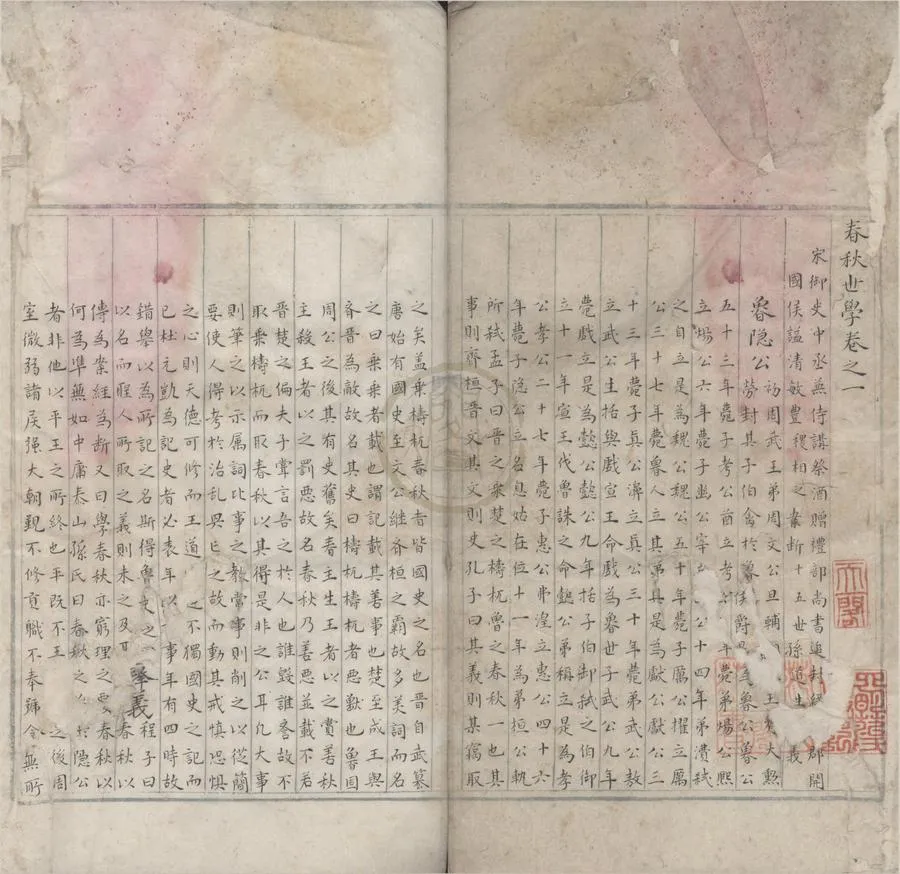 春秋世學卷之一
宋御史中丞兼侍講祭酒贈禮部尚書追封 郡開
國侯謚清敏豐稷相之案斷十五世孫道生 義
魯隐公
初周武王弟周文公旦輔 王 大勲
勞封其子伯禽於魯 爵 魯公魯公
五十三年薨子考公酋立考 年薨弟煬公熙
立煬公六年薨子幽公宰 公十四年弟濞弑
之自立是為魏公魏公五十年薨子厲公擢立厲
公三十七年薨魯人立其弟具是為獻公獻公三
十三年薨子真公濞立真公三十年薨弟武公敖
立武公生括與戲宣王命戲為魯世子武公九年
薨戲立是為懿公懿公九年括子伯御弑之伯御
立十一年宣王伐魯誅之命懿公弟稱立是為孝
公孝公二十七年薨子惠公弗湟立惠公四十六
年薨子隐公立名息姑在位十一年為弟桓公軌
所弑孟子曰晋之乘楚之檮杌魯之春秋一也其
事則齊桓晋文其文則史孔子曰其義則某竊取
之矣盖乘檮杌春秋者皆國史之名也晋自武墓
唐始有國史至文公継齐桓之霸故多美詞而名
之曰乘乘者載也謂記載其善事也楚至成王與
齐晋為敵故名其史曰檮杌檮杌者惡獸也魯国
周公之後其有史舊矣春主生王者以之賞善秋
主殺王者以之罰惡故名春秋乃善惡並載不若
晋楚之偏夫子甞言吾之於人也誰毀誰譽故不
取乘檮杌而取春秋以其得是非之公耳凡大事
則筆之以示属詞比事之教常事則削之以從簡
要使人得考於治乱興亡之故而動其戒慎恐惧
之心則天德可修而王道 之不獨國史之記而
已杜元凱為記史者必表年以 事年有四時故
錯舉以為所記之名斯得魯史之 程子曰
以名而聖人所取之義則未之及 春秋
傳為案經為断又曰學春秋亦窮理之要春秋以
何為準無如中庸泰山孫氏曰春秋之 於隐公
者非他以平王之所終也平既不王 之後周
室微弱諸侯强大朝覲不修貢職不奉號令無所